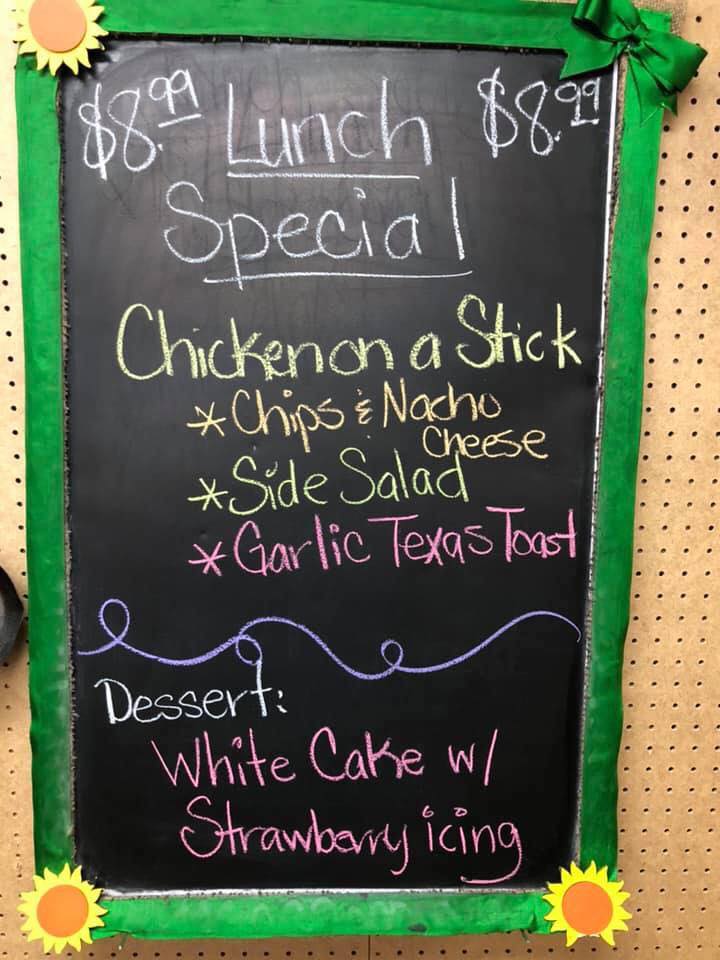 $8.99 Lunch $8.99
Special
Chicken on a Stick
* Chips & Nacho
Cheese
* Side Salad
* Garlic Texas Toast
Dessert:
White Cake w/
Strawberry icing